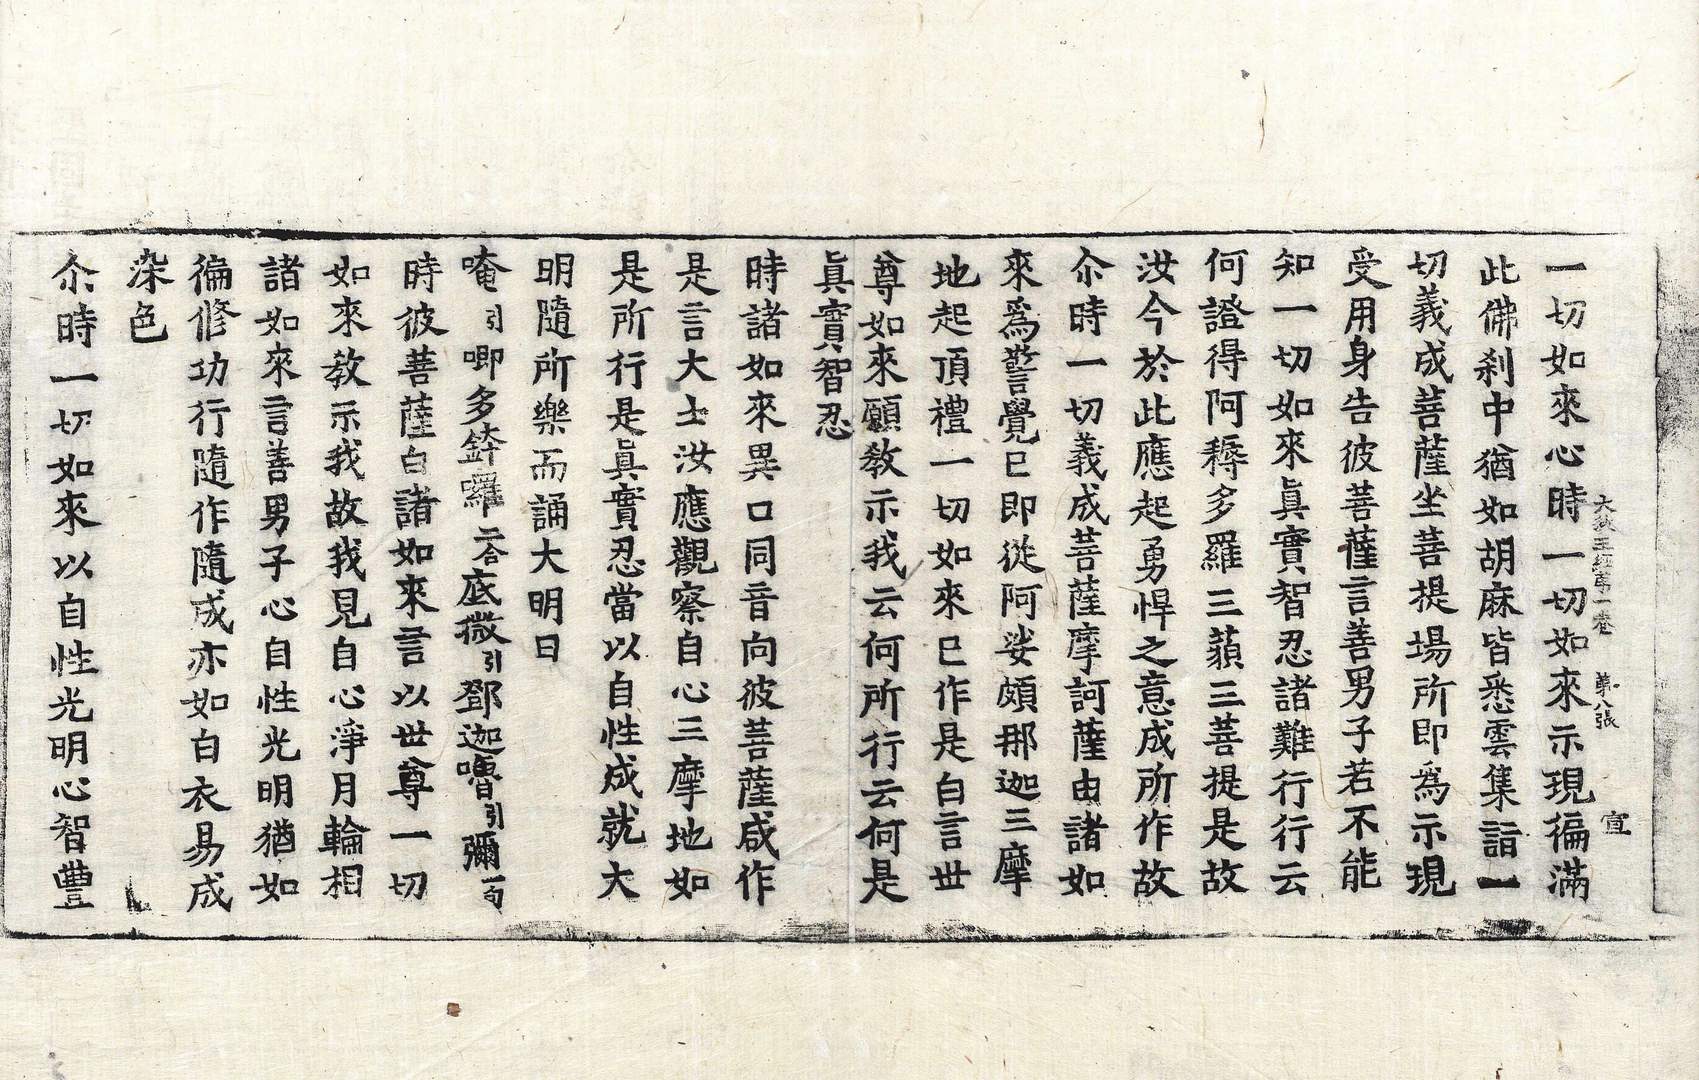 大敎王經第一卷　第八張　宣
一切如來心時一切如來示現徧滿
此佛刹中猶如胡麻皆悉雲集詣一
切義成菩薩坐菩提場所即爲示現
受用身告彼菩薩言善男子若不能
知一切如來眞實智忍諸難行行云
何證得阿耨多羅三藐三菩提是故
汝今於此應起勇悍之意成所作故
尒時一切義成菩薩摩訶薩由諸如
來爲警覺已即從阿娑頗那迦三摩
地起頂禮一切如來已作是白言世
尊如來願敎示我云何所行云何是
眞實智忍
時諸如來異口同音向彼菩薩咸作
是言大士汝應觀察自心三摩地如
是所行是眞實忍當以自性成就大
明隨所樂而誦大明曰
唵引唧多鉢囉二合底微引鄧迦嚕引彌一句
時彼菩薩白諸如來言以世尊一切
如來敎示我故我見自心淨月輪相
諸如來言善男子心自性光明猶如
徧修功行隨作隨成亦如白衣易成
染色
尒時一切如來以自性光明心智豐